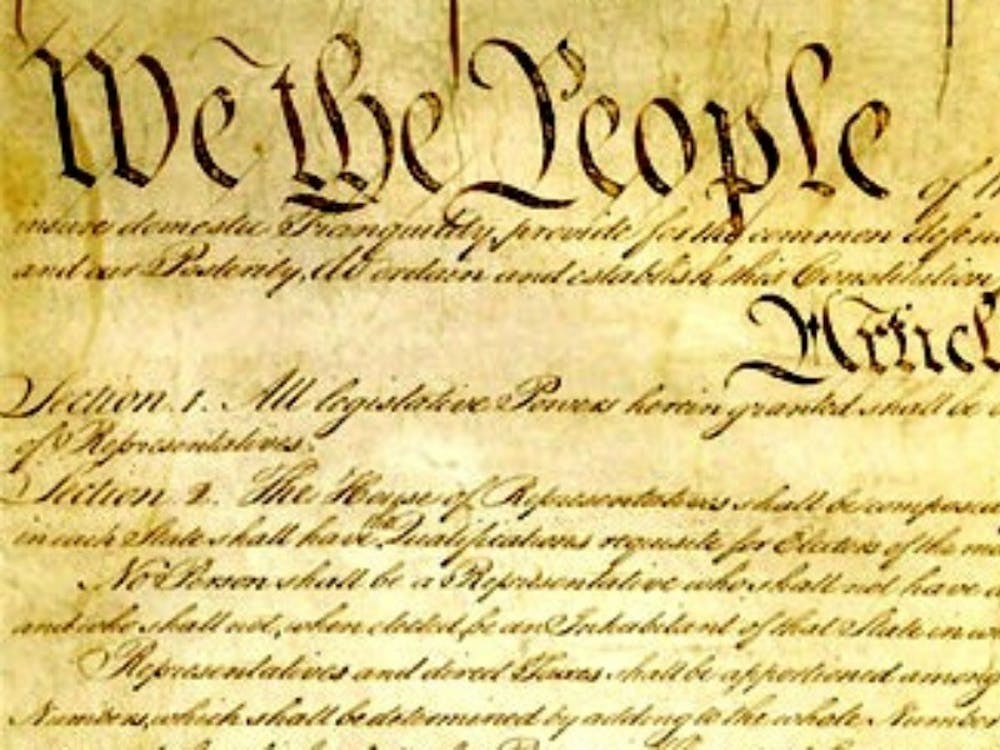 We the People of th
insure domestic Tranquility, provide for the common defenc
and our Posterity, do ordain and establish this Constitution
Articl
Section. 1. All legislative Powers herein granted shall be
of Representatives.
Section. 2. The House of Representatives shall be compose
in each State shall have the Qualifications requisite for Electors of the mo
No Person shall be a Representative who shall not have a
and who shall not, when elected, be an Inhabitant of that State in w
Representatives and direct Taxes shall be apportioned among
Numbers, which shall be determined by adding to the whole Number